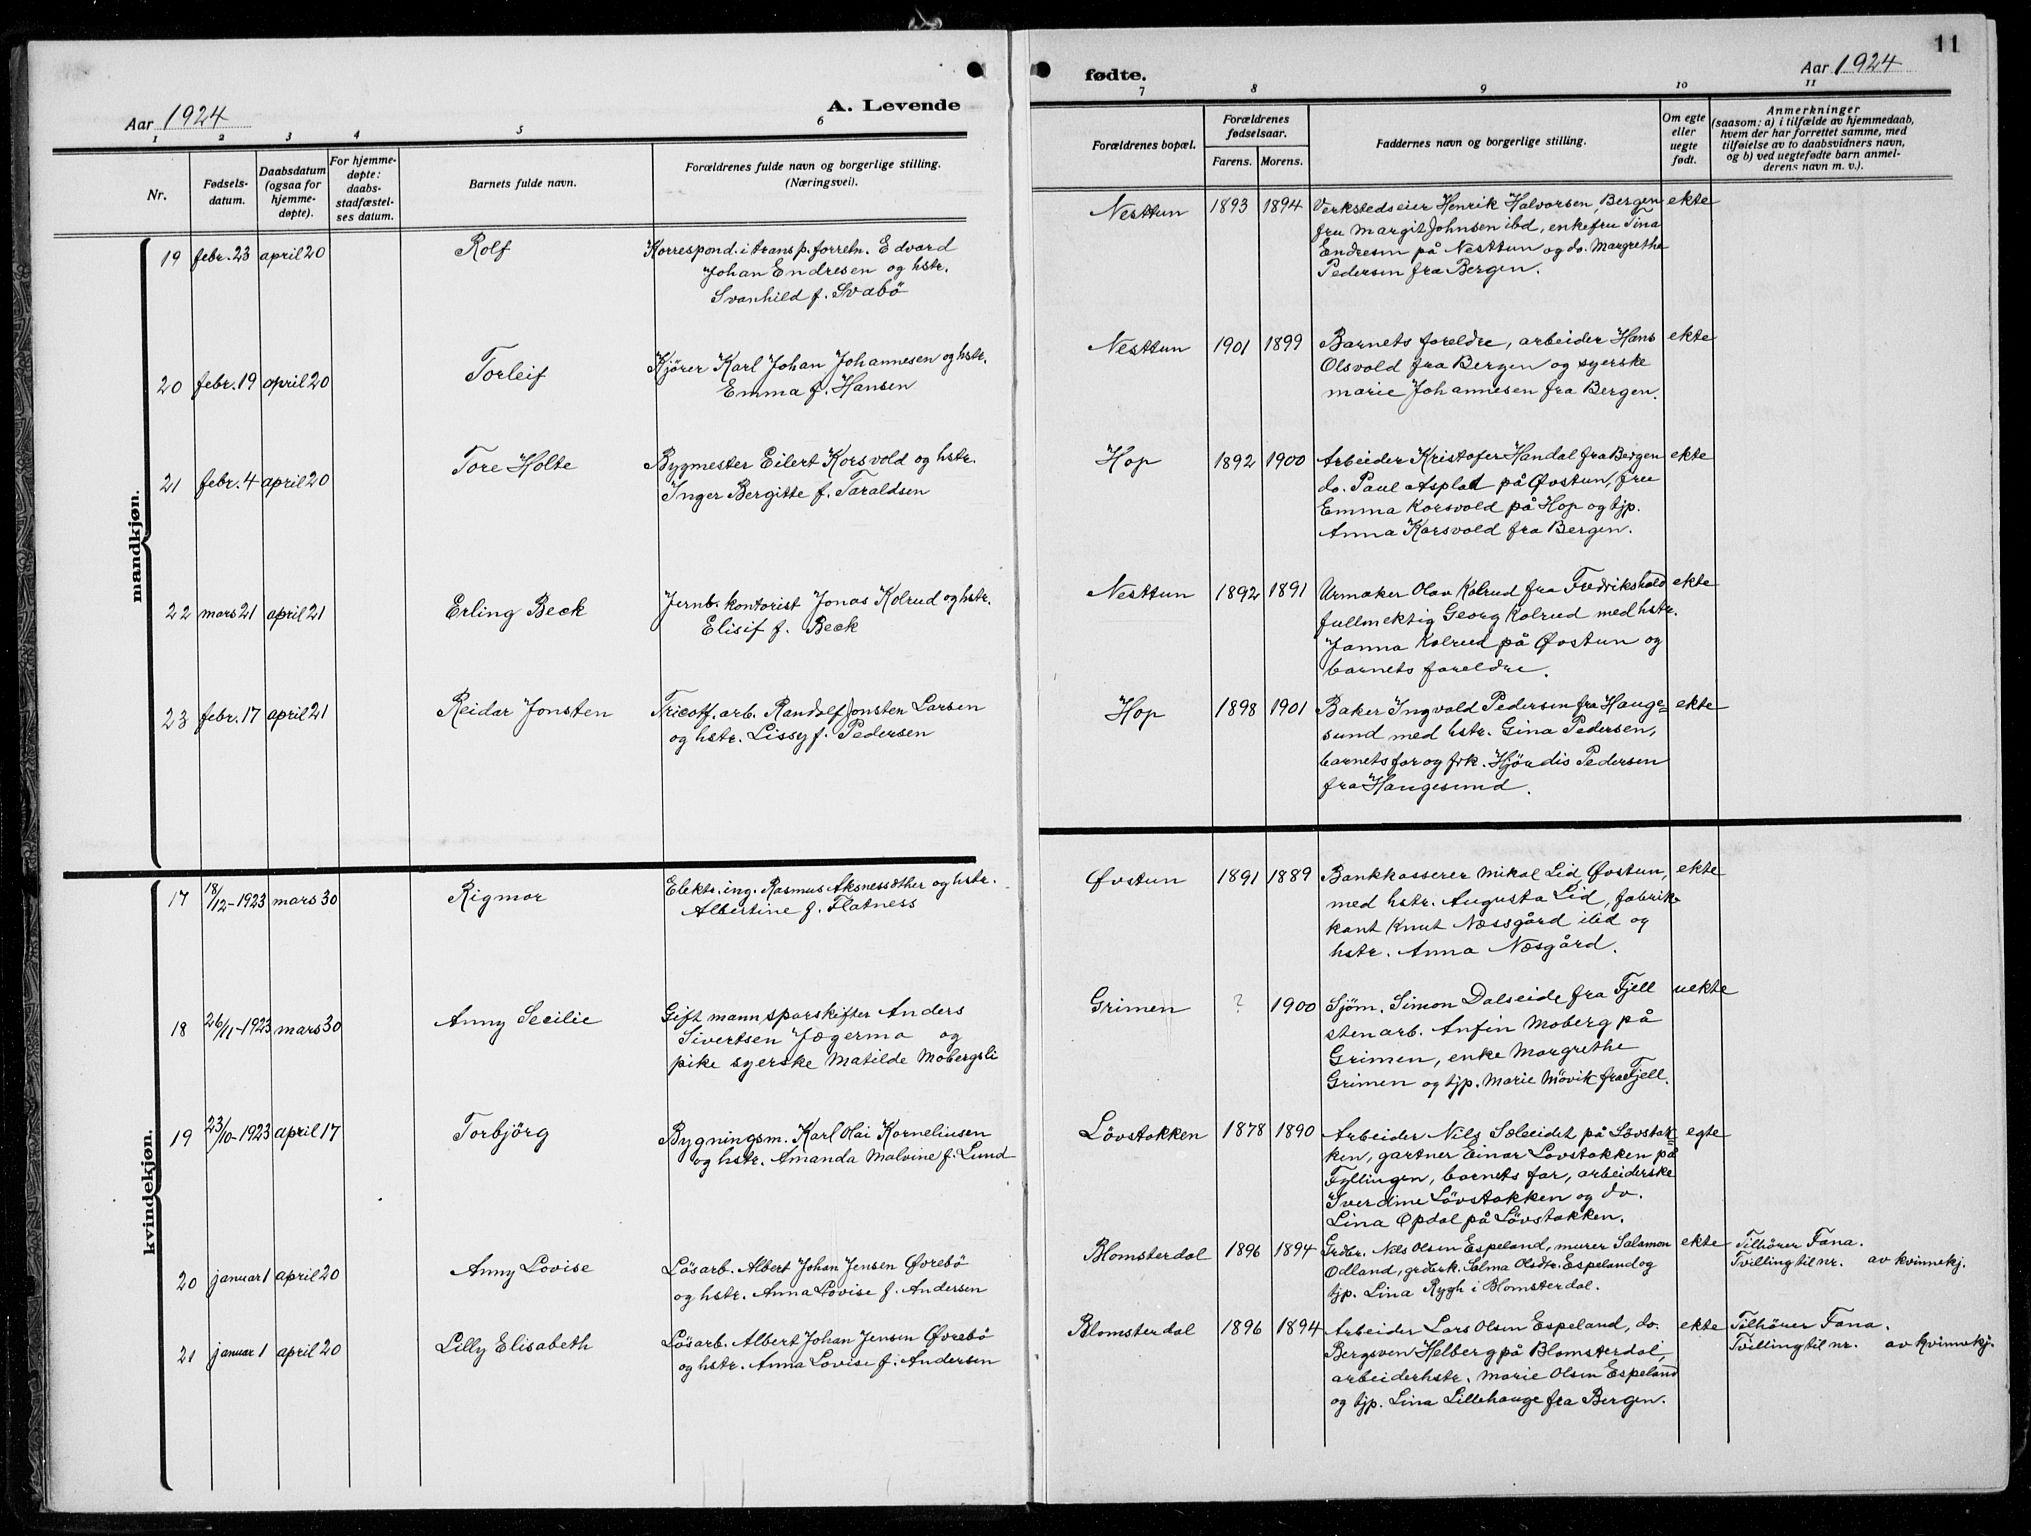 Aar 1924
A. Levende
1 2 3 4 5 6
Nr.
Fødsels-
datum.
Daabsdatum
(ogsaa for
hjemme-
døpte).
For hjemme-
døpte:
daabs-
stadfæstel-
ses datum.
Barnets fulde navn.
Forældrenes fulde navn og borgerlige stilling.
(Næringsvei).
mandkjøn.
19 febr. 23 april 20 Rolf Korrespond. i transp. forretn. Edvard
Johan Endresen og hstr.
Svanhild f. Svabö
20 febr. 19 april 20 Torleif Kjörer Karl Johan Johannesen og hstr.
Emma f. Hansen
21 febr. 4 april 20 Tore Holte Bygmester Eilert Korsvold og hstr.
Inger Bergitte f. Taraldsen
22 mars 21 april 21 Erling Beck Jernb. kontorist Jonas Kolrud og hstr.
Elisif f. Beck
23 febr. 17 april 21 Reidar Jonsten Tricotf. arb. Randolf Jonsten Larsen
og hstr. Lissy f. Pedersen
kvindekjøn.
17 18/12-1923 mars 30 Rigmor Elektr. ing. Rasmus Aksnessæther og hstr.
Albertine f. Flatness
18 26/11-1923 mars 30 Anny Secilie Gift mann sporskifter Anders
Sivertsen Jægerma og
pike syerske Matilde Mobergsli
19 23/10-1923 april 17 Torbjörg Bygningsm. Karl Olai Korneliusen
og hstr. Amanda Malvine f. Lund
20 januar 1 april 20 Anny Lovise Lösarb. Albert Johan Jensen Øvrebö
og hstr. Anna Lovise f. Andersen
21 januar 1 april 20 Lilly Elisabeth Lösarb. Albert Johan Jensen Øvrebö
og hstr. Anna Lovise f. Andersen
fødte.
Aar 1924
11
7 8 9 10 11
Forældrenes bopæl.
Forældrenes
fødselsaar.
Farens. Morens.
Faddernes navn og borgerlige stilling.
Om egte
eller
uegte
født.
Anmerkninger
(saasom: a) i tilfælde av hjemmedaab,
hvem der har forrettet samme, med
tilføielse av to daabsvidners navn,
og b) ved uegtefødte barn anmel-
derens navn m. v.).
Nesttun 1893 1894 Verkstedseier Henrik Halvorsen, Bergen ekte
fru Margit Johnsen ibd, enkefru Tina
Endresen på Nesttun og do. Margrethe
Pedersen fra Bergen.
Nesttun 1901 1899 Barnets foreldre, arbeider Hans ekte
Olsvold fra Bergen og syerske
Marie Johannesen fra Bergen.
Hop 1892 1900 Arbeider Kristofer Handal fra Bergen ekte
do. Paul Asplat på Øvstun, fru
Emma Korsvold på Hop og tjp.
Anna Korsvold fra Bergen.
Nesttun 1892 1891 Urmaker Olav Kolrud fra Fredrikshald ekte
fullmektig Georg Kolrud med hstr.
Janna Kolrud på Øvstun og
barnets foreldre.
Hop 1898 1901 Baker Ingvald Pedersen fra Hauge= ekte
sund med hstr. Gina Pedersen,
barnets far og frk. Hjördis Pedersen
fra Haugesund.
Øvstun 1891 1889 Bankkasserer Mikal Lid Øvstun, ekte
med hstr. Augusta Lid, fabrik-
kant Knut Næssgård ibid og
hstr. Anna Næsgård.
Grimen ? 1900 Sjöm. Simon Dalseide fra Fjell uekte
stenarb. Anfin Moberg på
Grimen, enke Margrethe
Grimen og tjp. Marie Mövik fra Fjell.
Lövstakken 1878 1890 Arbeider Nils Sæleidet på Lövstak= egte
ken, gartner Einar Lövstakken på
Fyllingen, barnets far, arbeiderske
Iverdine Lövstakken og do.
Lina Opdal på Lövstakken.
Blomsterdal 1896 1894 Grdbr. Nils Olsen Espeland, murer Salamon ekte Tilhörer Fana.
Odland, grderk. Salma Olsdtr. Espeland og Tvilling til nr. av kvinnekj.
tjp. Lina Rygh i Blomsterdal.
Blomsterdal 1896 1894 Arbeider Lars Olsen Espeland, do. ekte Tilhörer Fana.
Bergsven Helberg på Blomsterdal, Tvilling til nr. av kvinnekj.
arbeiderhstr. Marie Olsen Espeland
og tjp. Lina Lillehauge fra Bergen.